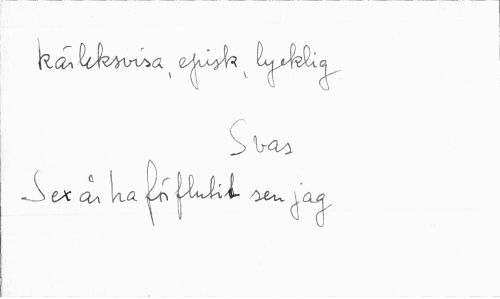 kärleksvisa, episk, lycklig
Svas
Sex år ha förflutit sen jag